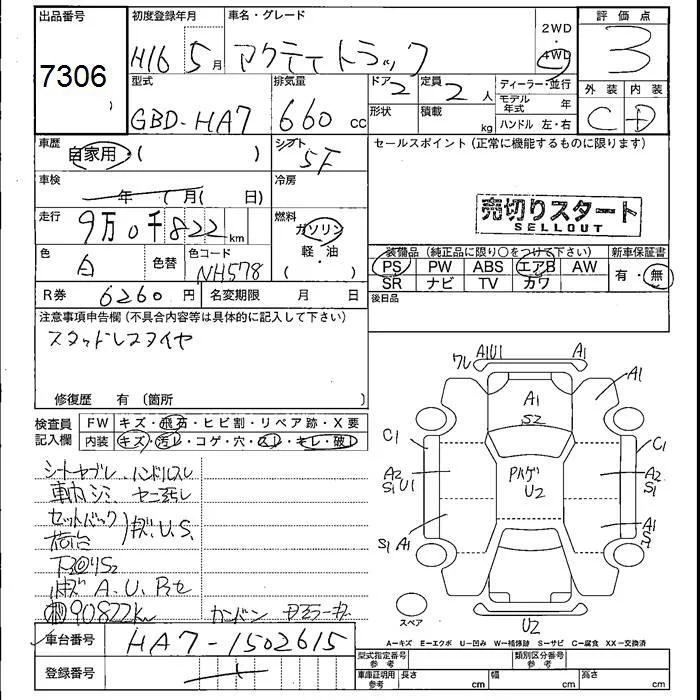 出品番号
7306
初度登録年月
H16 5月
車名・グレード
アクティ トラック
2WD
・
4WD
評価点
3
型式
GBD-HA7
排気量
660 cc
ドア
2
定員
2人
ディーラー・並行
モデル年式 年
ハンドル 左・右
形状
積載
kg
外装
内装
C
D
車歴
自家用・( )
シフト
5F
セールスポイント(正常に機能するものに限ります)
車検
年 月( 日)
冷房
走行
9万0千822km
燃料
ガソリン
軽・油
( )
売切りスタート
SELLOUT
色
白
色替
色コード
NH578
装備品(純正品に限り○をつけて下さい)
新車保証書
PS PW ABS エアB AW
有・無
SR ナビ TV カワ
R券 6260円
名変期限 月 日
後日品
注意事項申告欄(不具合内容等は具体的に記入して下さい)
スタッドレスタイヤ
修復歴 有(箇所 )
検査員
記入欄
FW キズ・飛石・ヒビ割・リペア跡・X要
内装 キズ・汚レ・コゲ・穴・スレ・キレ・破レ
シートヤブレ、ハンドルスレ
セットバック
荷台
キズ、U.S.
A.U.
90822km
ワレ A1U1 A1
A1 A1
S2
C1 C1
A2 A2
S1 U1 S1
U2
S1 A1 A1
スペア
U2
A-キズ E-エクボ U-凹み W-補修跡 S-サビ C-腐食 XX-交換済
車台番号 HA7-1502615
登録番号
型式指定番号
参考
類別区分番号
参考
車庫証明用
参考
長さ cm
幅 cm
高さ cm